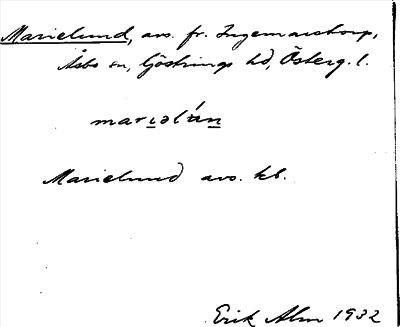 Marielund, avs. fr. Ingemarstorp,
Åsbo sn, Göstrings hd, Österg. l.
mariəlún
Marielund avs. kb.
Erik Alm 1932